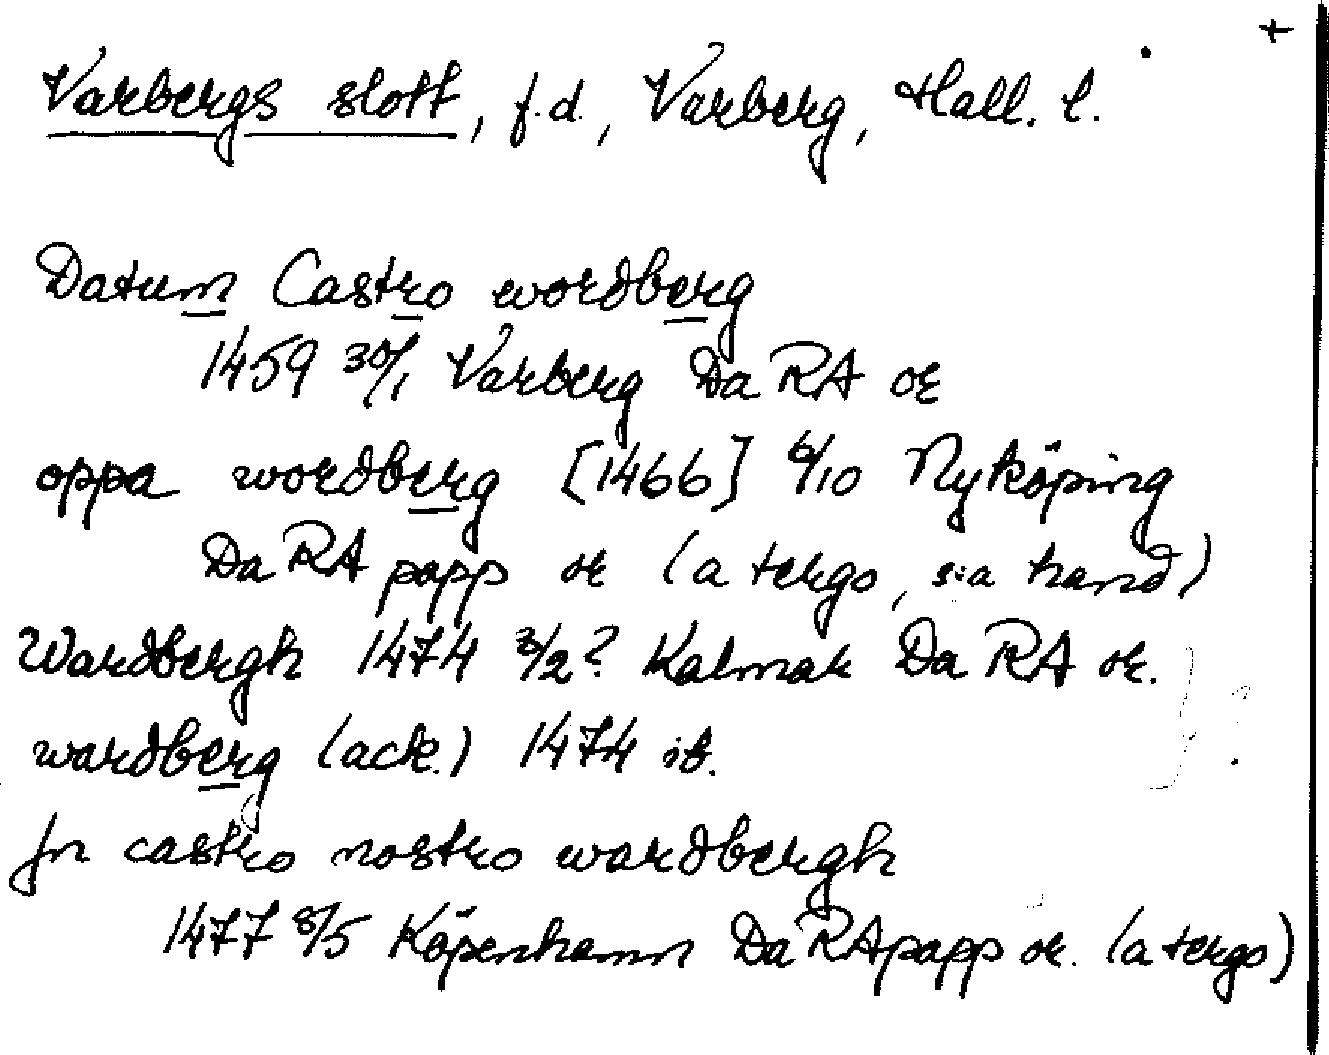 +
Varbergs slott, f.d., Varberg, Hall. l.
Datum Castro wordberg
1459 30/1 Varberg Da RA or
oppa wordberg [1466] 6/10 Nyköping
Da RA papp or (a tergo, s:a hand)
Wardbergh 1474 3/2? Kalmar Da RA or.
wardberg (ack.) 1474 ib.
Jn castro nostro wardbergh
1477 8/5 Köpenhamn Da RA papp or. (a tergo)